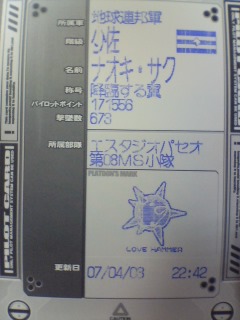 所属軍
地球連邦軍
階級
少佐
名前
ナオキ・サク
称号
降臨する翼
パイロットポイント
171556
撃墜数
673
所属部隊
エスタジオパセオ
第08MS小隊
PLATOON'S MARK
LOVE HAMMER
更新日
07/04/03 22:42
PILOT CARD
PILOT CARD